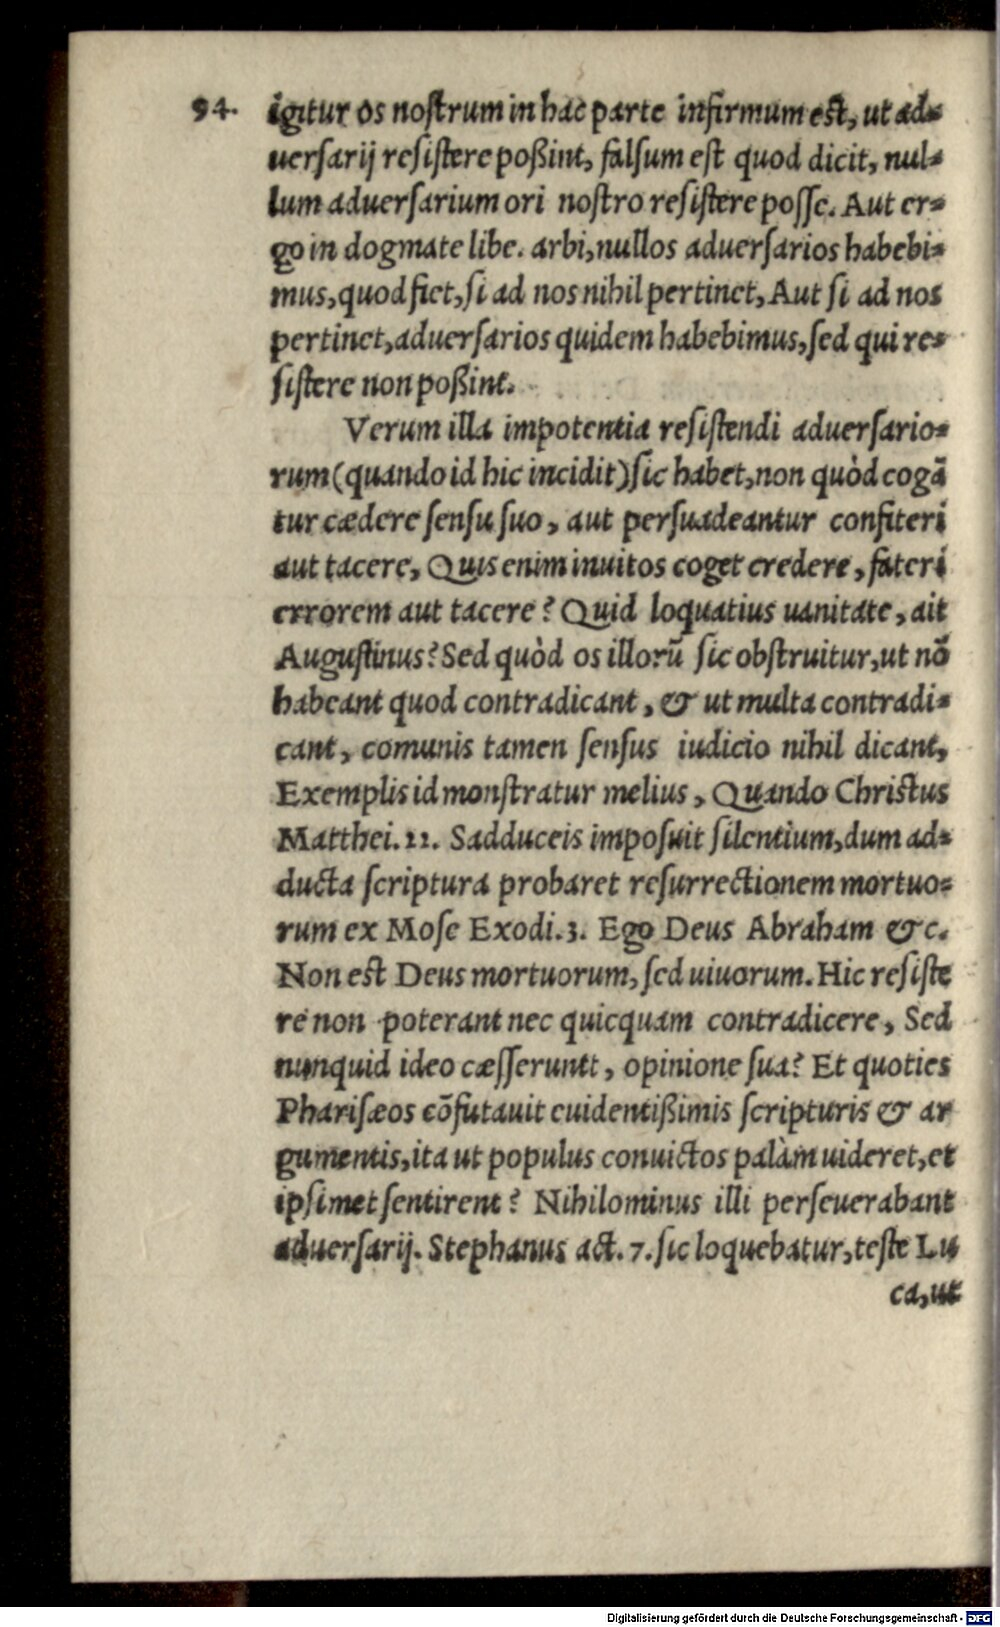 94. igitur os nostrum in hac parte infirmum est, ut ad=
uersarij resistere poßint, falsum est quod dicit, nul=
lum aduersarium ori nostro resistere posse. Aut er=
go in dogmate libe. arbi, nullos aduersarios habebi=
mus, quod fiet, si ad nos nihil pertinet, Aut si ad nos
pertinet, aduersarios quidem habebimus, sed qui re=
sistere non poßint.
Verum illa impotentia resistendi aduersario=
rum (quando id hic incidit) sic habet, non quòd cogã
tur cædere sensu suo, aut persuadeantur confiteri
aut tacere, Quis enim inuitos coget credere, fateri
errorem aut tacere? Quid loquatius uanitate, ait
Augustinus? Sed quòd os illorũ sic obstruitur, ut nõ
habeant quod contradicant, & ut multa contradi=
cant, comunis tamen sensus iudicio nihil dicant,
Exemplis id monstratur melius, Quando Christus
Matthei. 22. Sadduceis imposuit silentium, dum ad=
ducta scriptura probaret resurrectionem mortuo=
rum ex Mose Exodi. 3. Ego Deus Abraham &c.
Non est Deus mortuorum, sed uiuorum. Hic resiste
re non poterant nec quicquam contradicere, Sed
nunquid ideo cæsseruntt, opinione sua? Et quoties
Pharisæos cõfutauit euidentißimis scripturis & ar
gumentis, ita ut populus conuictos palàm uideret, et
ipsimet sentirent? Nihilominus illi perseuerabant
aduersarij. Stephanus act. 7. sic loquebatur, teste Lu
ca, ut
Digitalisierung gefördert durch die Deutsche Forschungsgemeinschaft - DFG